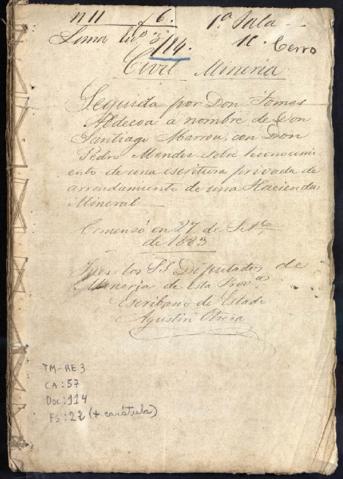 n 11 f 6. 1ª Sala
Lomo 3º 114. Cerro
Civil Mineria
Seguida por Don Tomas
Aldecoa a nombre de Don
Santiago Marrou con Don
Pedro Mendes sobre reconocimi
ento de una escritura privada de
arrendamiento de una Hacienda
Mineral
Comensó en 27 de Setbe
de 1883
Jues los S.S. Diputados de
Mineria de Esta Prova
Escribano de Estado
Agustin
TM-RE 3
CA: 57
Doc: 114
Fs: 22 (+ carátula)